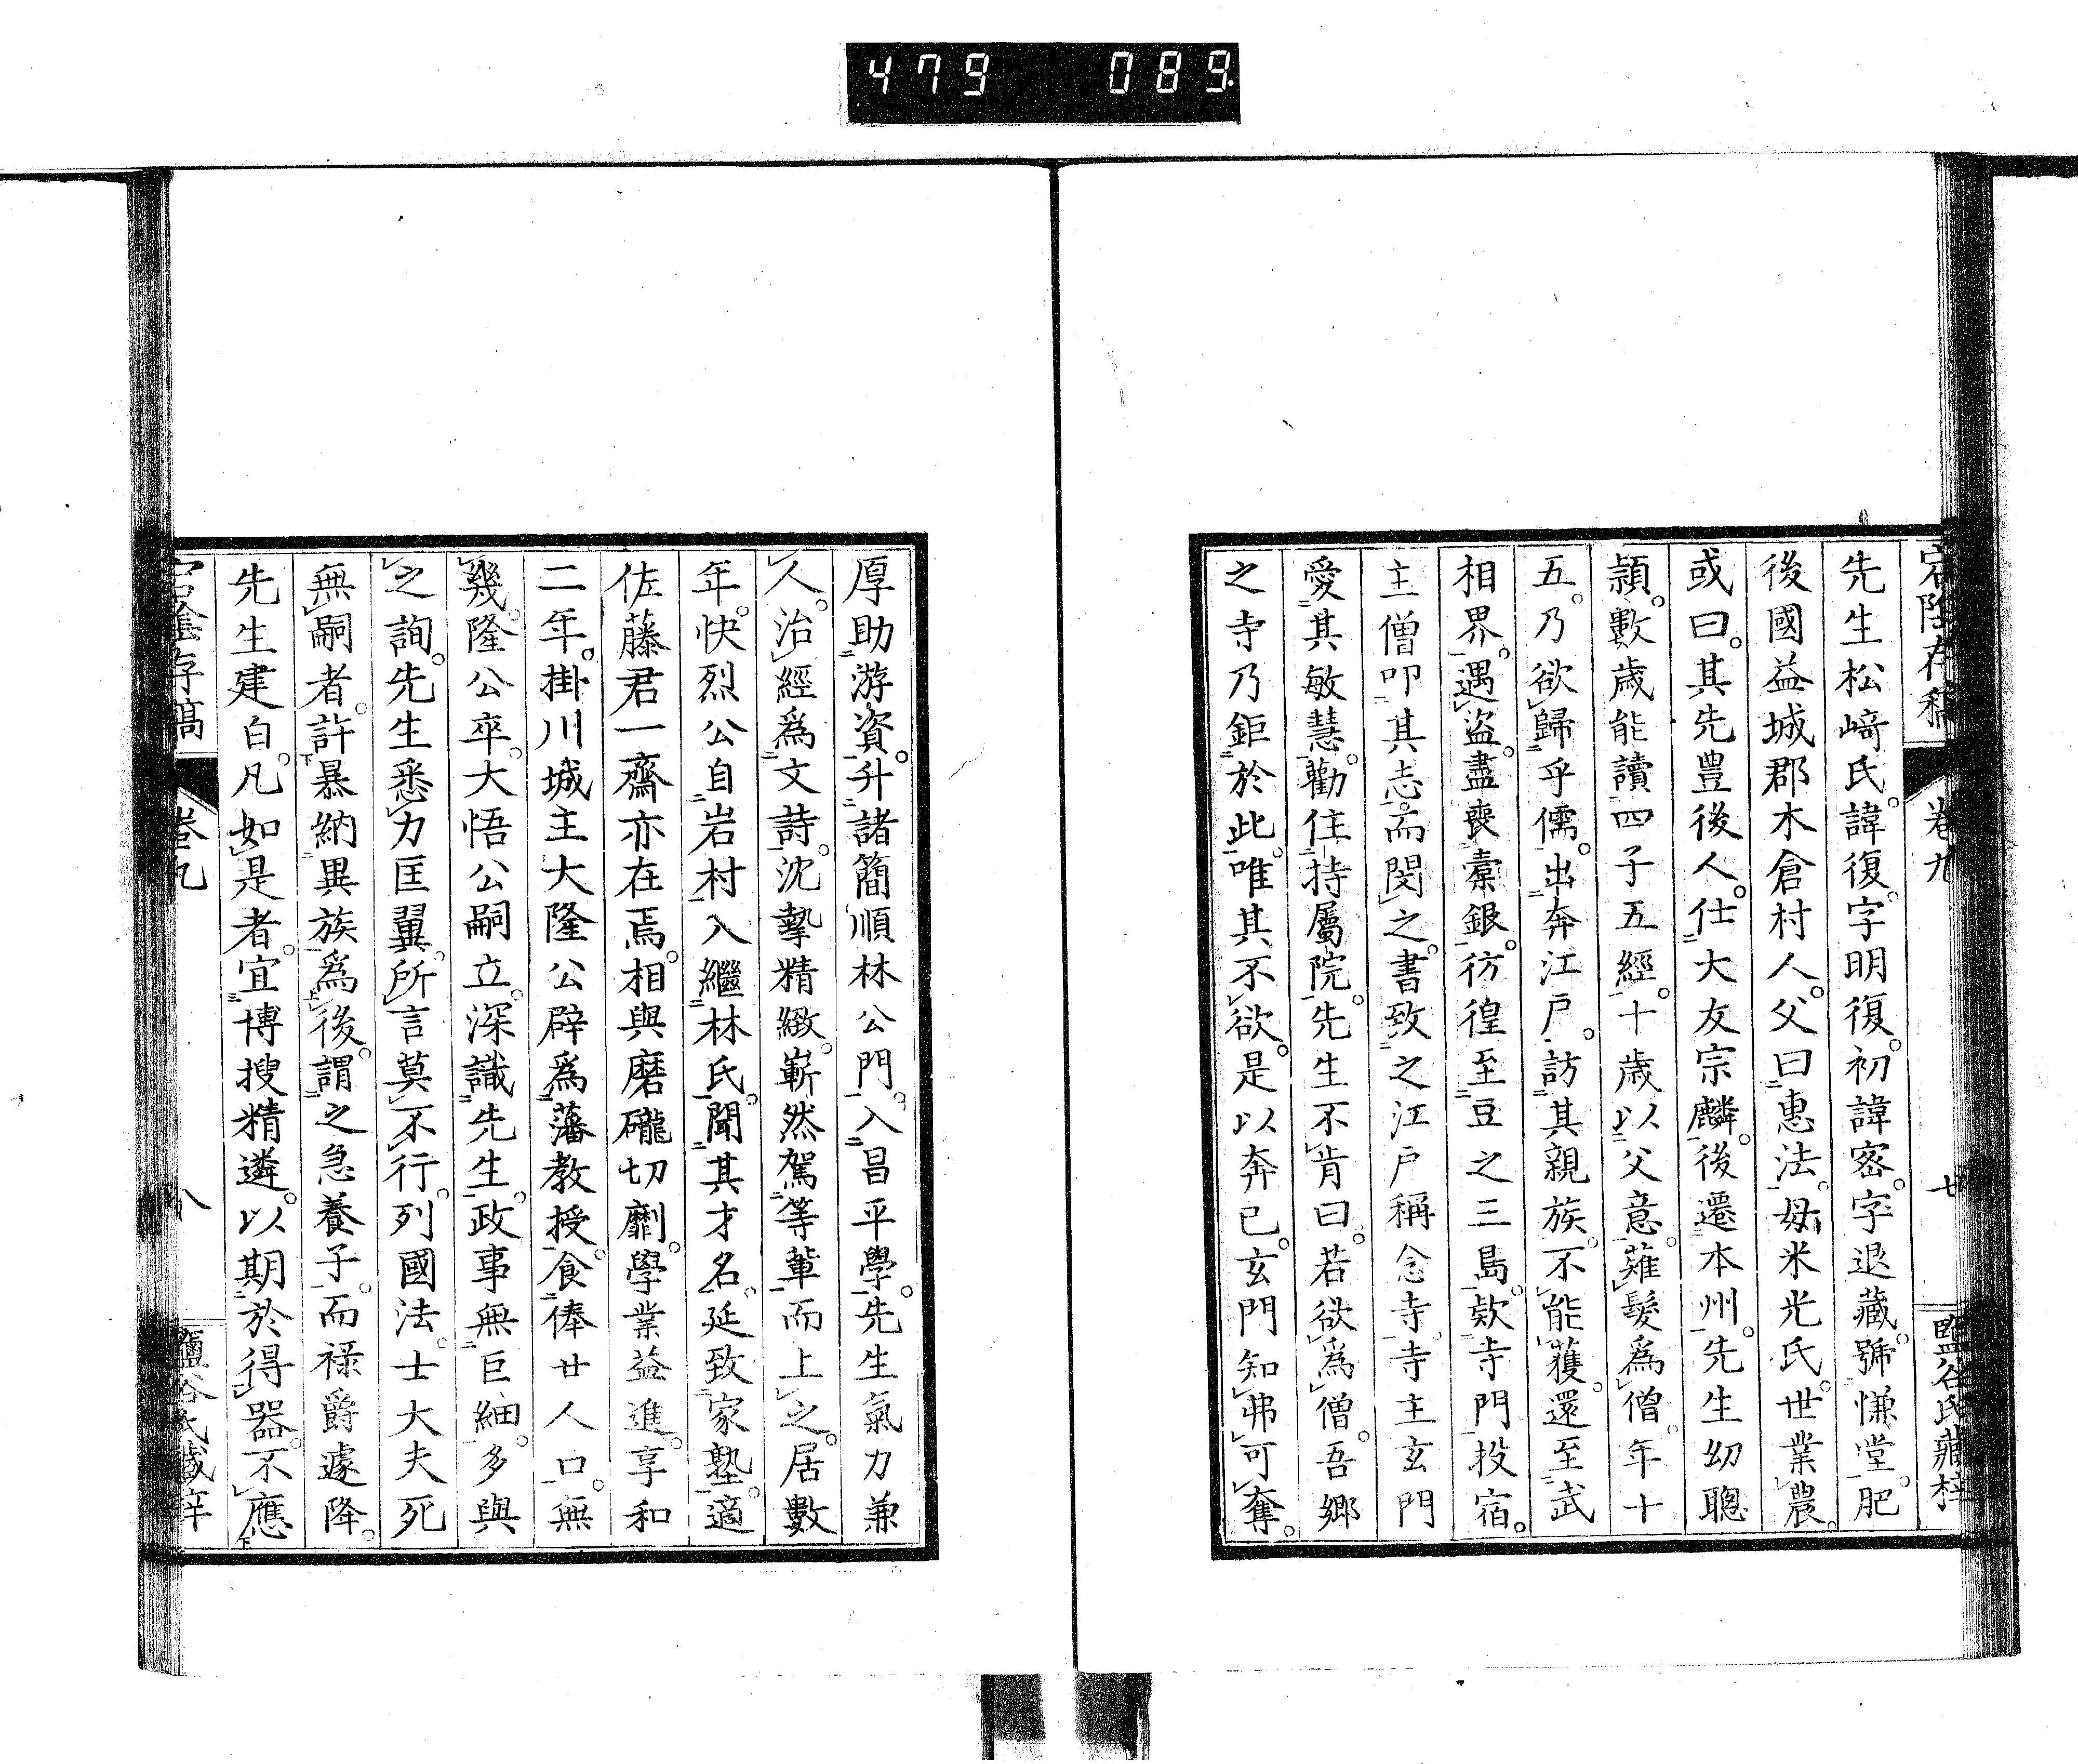 479 089
宕陰存稿 卷九 廿 鹽谷氏藏梓
先生松﨑氏。諱復。字明復。初諱密。字退藏。號慊堂。肥
後國益城郡木倉村人。父曰惠法。母米光氏。世業農。
或曰。其先豊後人。仕大友宗麟。後遷本州。先生幼聰
頴。數歲能讀四子五經。十歲以父意。薙髮爲僧。年十
五。乃欲歸乎儒。出奔江戶。訪其親族。不能獲。還至武
相界。遇盜。盡喪橐銀。彷徨至豆之三島。欵寺門投宿。
主僧叩其志。而閔之。書致之江戶稱念寺。寺主玄門
愛其敏慧。勸住持屬院。先生不肯曰。若欲爲僧。吾鄉
之寺乃鉅於此。唯其不欲。是以奔已。玄門知弗可奪。
厚助游資。升諸簡順林公門。入昌平學。先生氣力兼
人。治經爲文詩。沈摯精緻。嶄然駕等輩而上之。居數
年。快烈公自岩村入繼林氏。聞其才名。延致家塾。適
佐藤君一齋亦在焉。相與磨礲切劘。學業益進。享和
二年。掛川城主大隆公辟爲藩教授。食俸廿人口。無
幾。隆公卒。大悟公嗣立。深識先生。政事無巨細。多與
之詢。先生悉力匡翼。所言莫不行。列國法。士大夫死
無嗣者。許暴納異族爲後。謂之急養子。而禄爵遽降。
先生建白。凡如是者。宜博搜精遴。以期於得器。不應
宕陰存稿 卷九 八 鹽谷氏藏梓